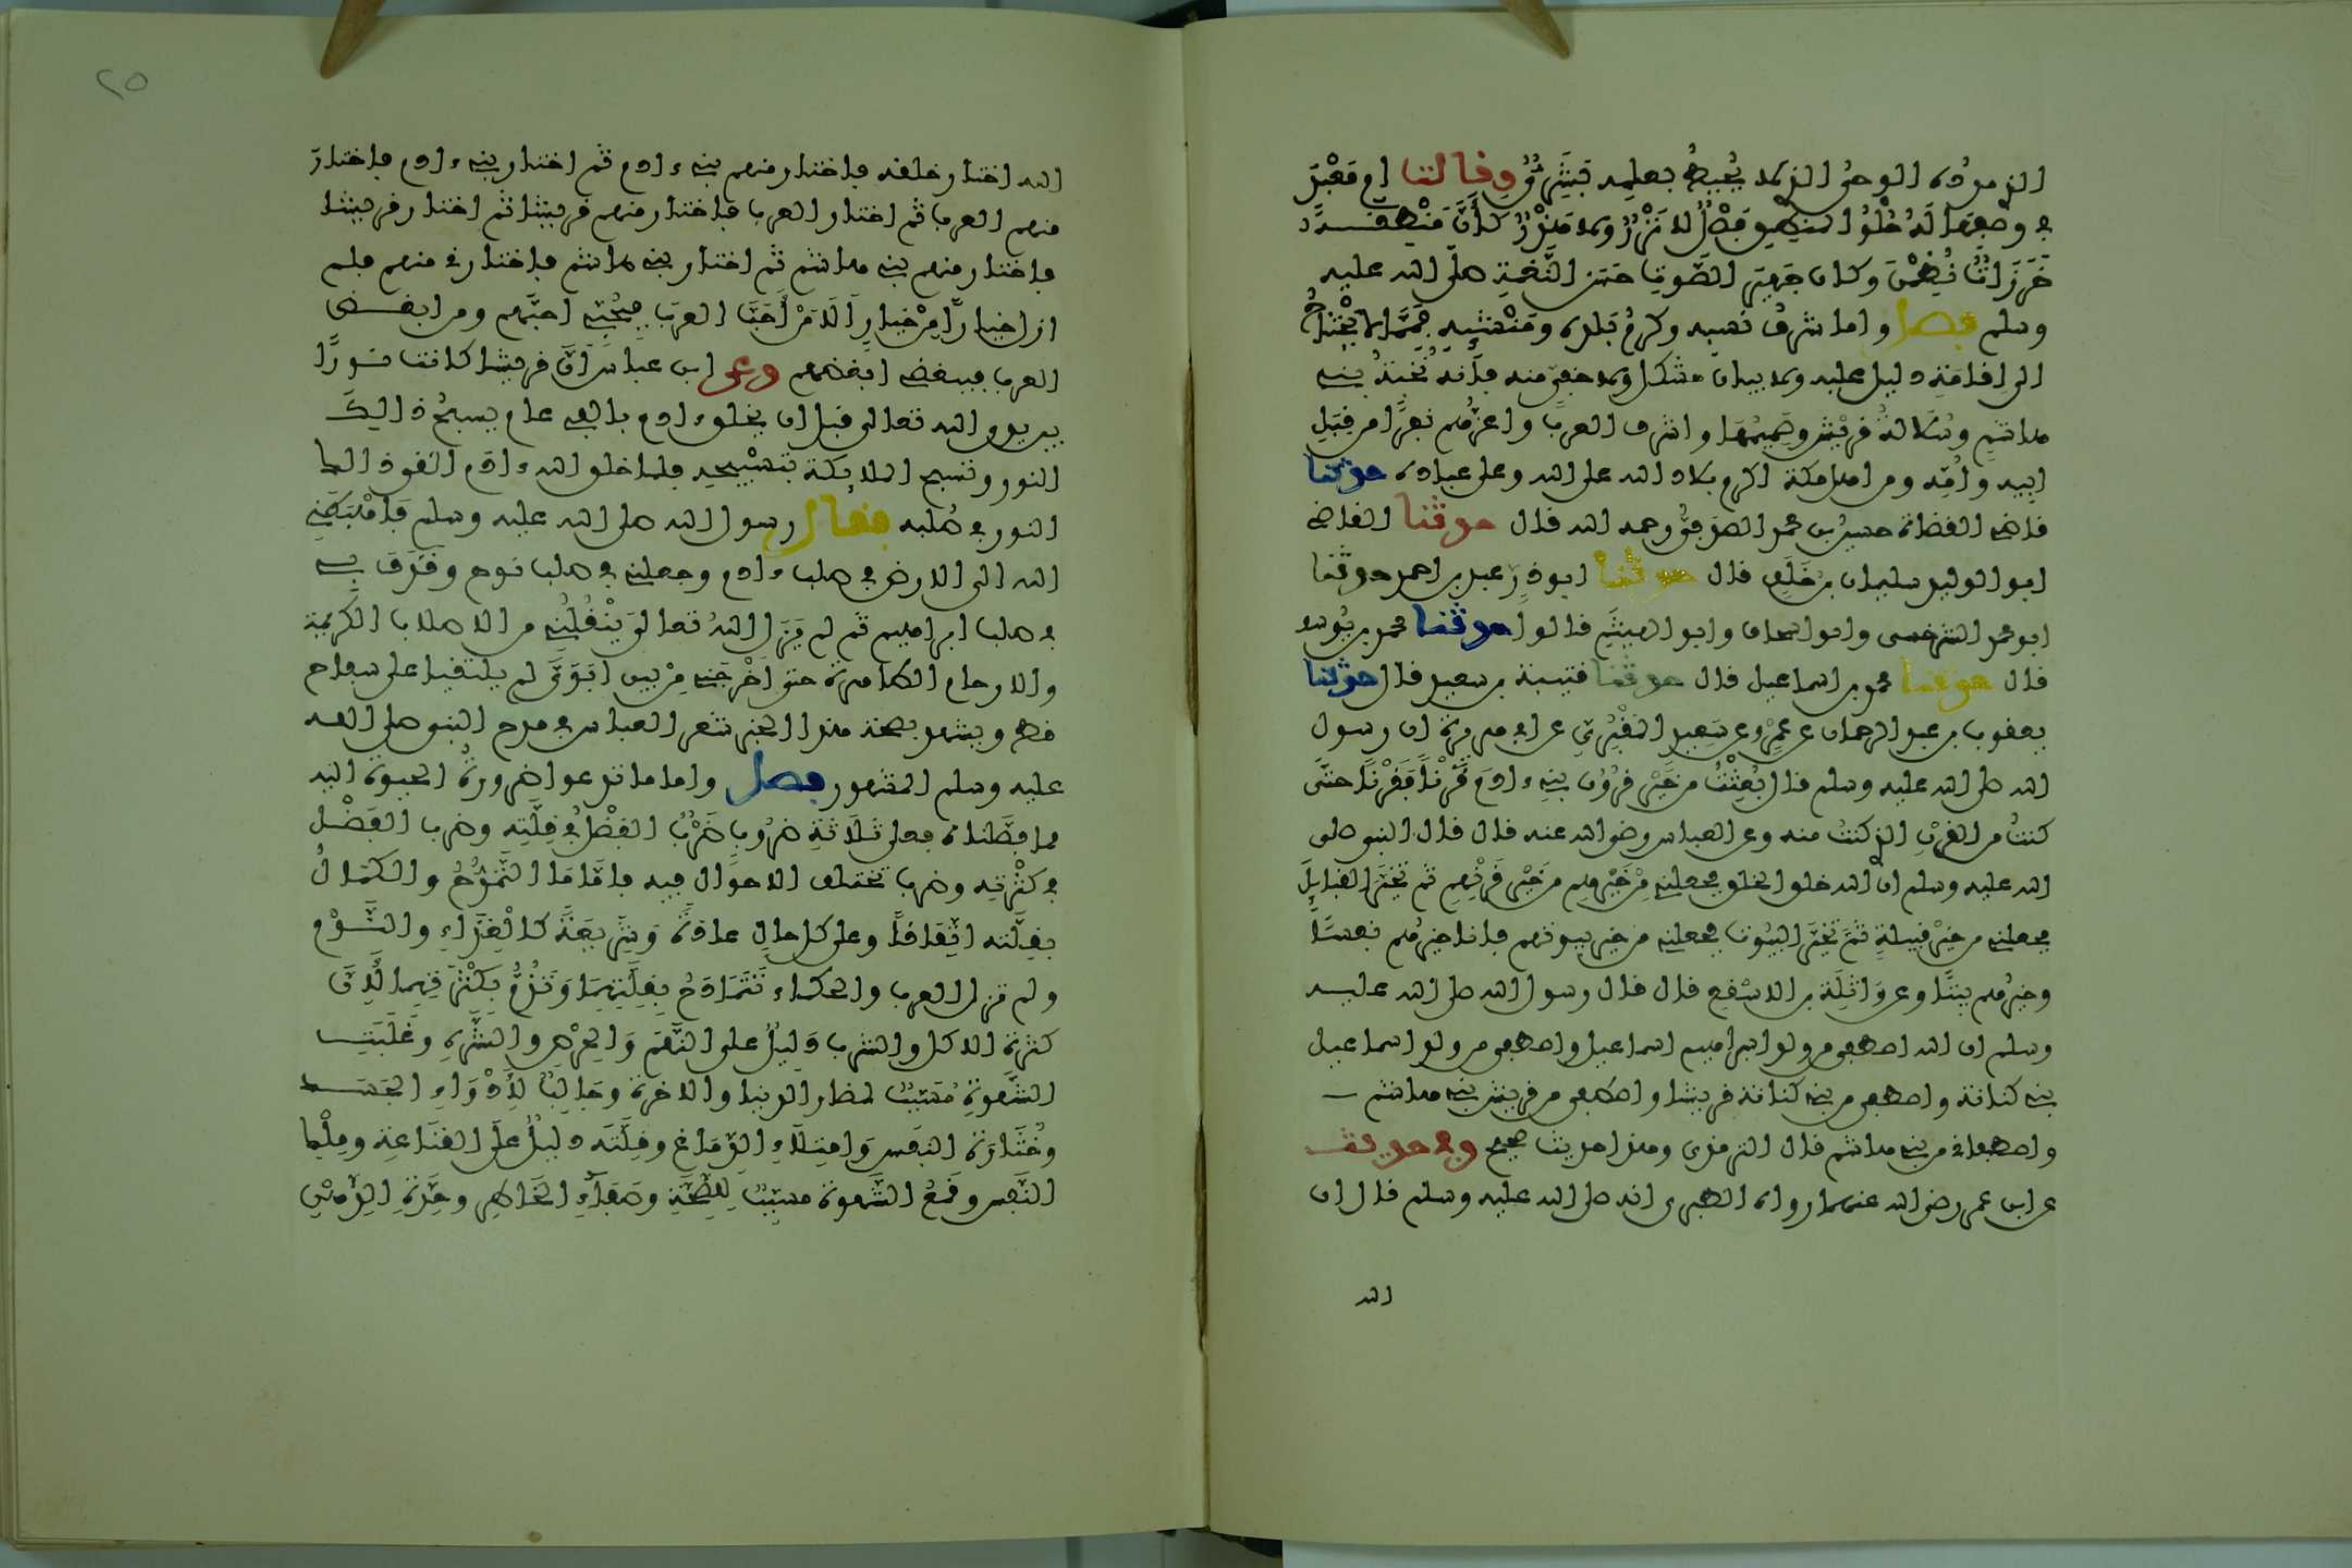 الذي مدده الوحي الذي لا يحيط بعلمه بشري وقالت ام معبد
في وصفها له حلو المنطق فصل لا نزر ولا هذر كأن منطقه
خرزات نظمن وكان جهير الصوت حسن النغمة صلى الله عليه
وسلم فصل واما شرف نسبه وكرم بلده ومنشئه فمما لا يحتاج
الى اقامة دليل عليه ولا بيان مشكل ولا خفي منه فانه نخبة بني
هاشم وسلالة قريش وصميمها واشرف العرب واعزهم نفرا من قبل
ابيه وامه ومن اهل مكة اكرم بلاد الله على الله وعلى عباده حدثنا
قاضي القضاة حسين بن محمد الصدفي رحمه الله قال حدثنا القاضي
ابو الوليد سليمان بن خلف قال حدثنا ابو ذر عبد بن احمد حدثنا
ابو محمد السرخسي وابو اسحاق وابو الهيثم قالوا حدثنا محمد بن يوسف
قال حدثنا محمد بن اسماعيل قال حدثنا قتيبة بن سعيد قال حدثنا
يعقوب بن عبد الرحمان عن عمرو عن سعيد المقبري عن ابي هريرة ان رسول
الله صلى الله عليه وسلم قال بعثت من خير قرون بني ءادم قرنا فقرنا حتى
كنت من القرن الذي كنت منه وعن العباس رضي الله عنه قال قال النبي صلى
الله عليه وسلم ان الله خلق الخلق فجعلني من خيرهم من خير قرنهم ثم تخير القبايل
فجعلني من خير قبيلة ثم تخير البيوت فجعلني من خير بيوتهم فانا خيرهم نفسا
وخيرهم بيتا وعن واثلة بن الاسقع قال قال رسول الله صلى الله عليه
وسلم ان الله اصطفى من ولد ابراهيم اسماعيل واصطفى من ولد اسماعيل
بني كنانة واصطفى من بني كنانة قريشا واصطفى من قريش بني هاشم
واصطفاني من بني هاشم قال الترمذي وهذا حديث صحيح وفي حديث
عن ابن عمر رضي الله عنهما رواه الطبري انه صلى الله عليه وسلم قال ان
الله
٢٥
الله اختار خلقه فاختار منهم بني ءادم ثم اختار بني ءادم فاختار
منهم العرب ثم اختار العرب فاختار منهم قريشا ثم اختار قريشا
فاختار منهم بني هاشم ثم اختار بني هاشم فاختارني منهم فلم
ازل خيارا من خيار الا من احب العرب فبحبي احبهم ومن ابغض
العرب فببغضي ابغضهم وعن ابن عباس ان قريشا كانت نورا
بين يدي الله تعالى قبل ان يخلق ءادم بالفي عام يسبح ذالك
النور وتسبح الملائكة بتسبيحه فلما خلق الله ءادم القى ذالك
النور في صلبه فقال رسول الله صلى الله عليه وسلم فاهبطني
الله الى الارض في صلب ءادم وجعلني في صلب نوح وقذف بي
في صلب ابراهيم ثم لم يزل الله تعالى ينقلني من الاصلاب الكريمة
والارحام الطاهرة حتى اخرجني من بين ابوي لم يلتقيا على سفاح
قط ويشهد بصحة هذا الخبر شعر العباس في مدح النبي صلى الله
عليه وسلم المشهور فصل واما ما تدعو اضرورة الحيوة اليه
مما فصلناه فعلى ثلاثة ضروب ضرب الفضل في قلته وضرب الفضل
في كثرته وضرب تختلف الاحوال فيه فاما ما التمدح والكمال
بقلته اتفاقا وعلى كل حال عادة وشريعة كالغذاء والنوم
ولم تزل العرب والحكماء تتمادح بقلتهما وتذم بكثرتهما لان
كثرة الاكل والشرب دليل على النهم والحرص والشره وغلبة
الشهوة مسبب لمضار الدنيا والاخرة وجالب لادواء الجسد
وخثارة النفس وامتلاء الدماغ وقلته دليل على القناعة وملك
النفس وقمع الشهوة مسبب للصحة وصفاء الخاطر وحدة الذهن